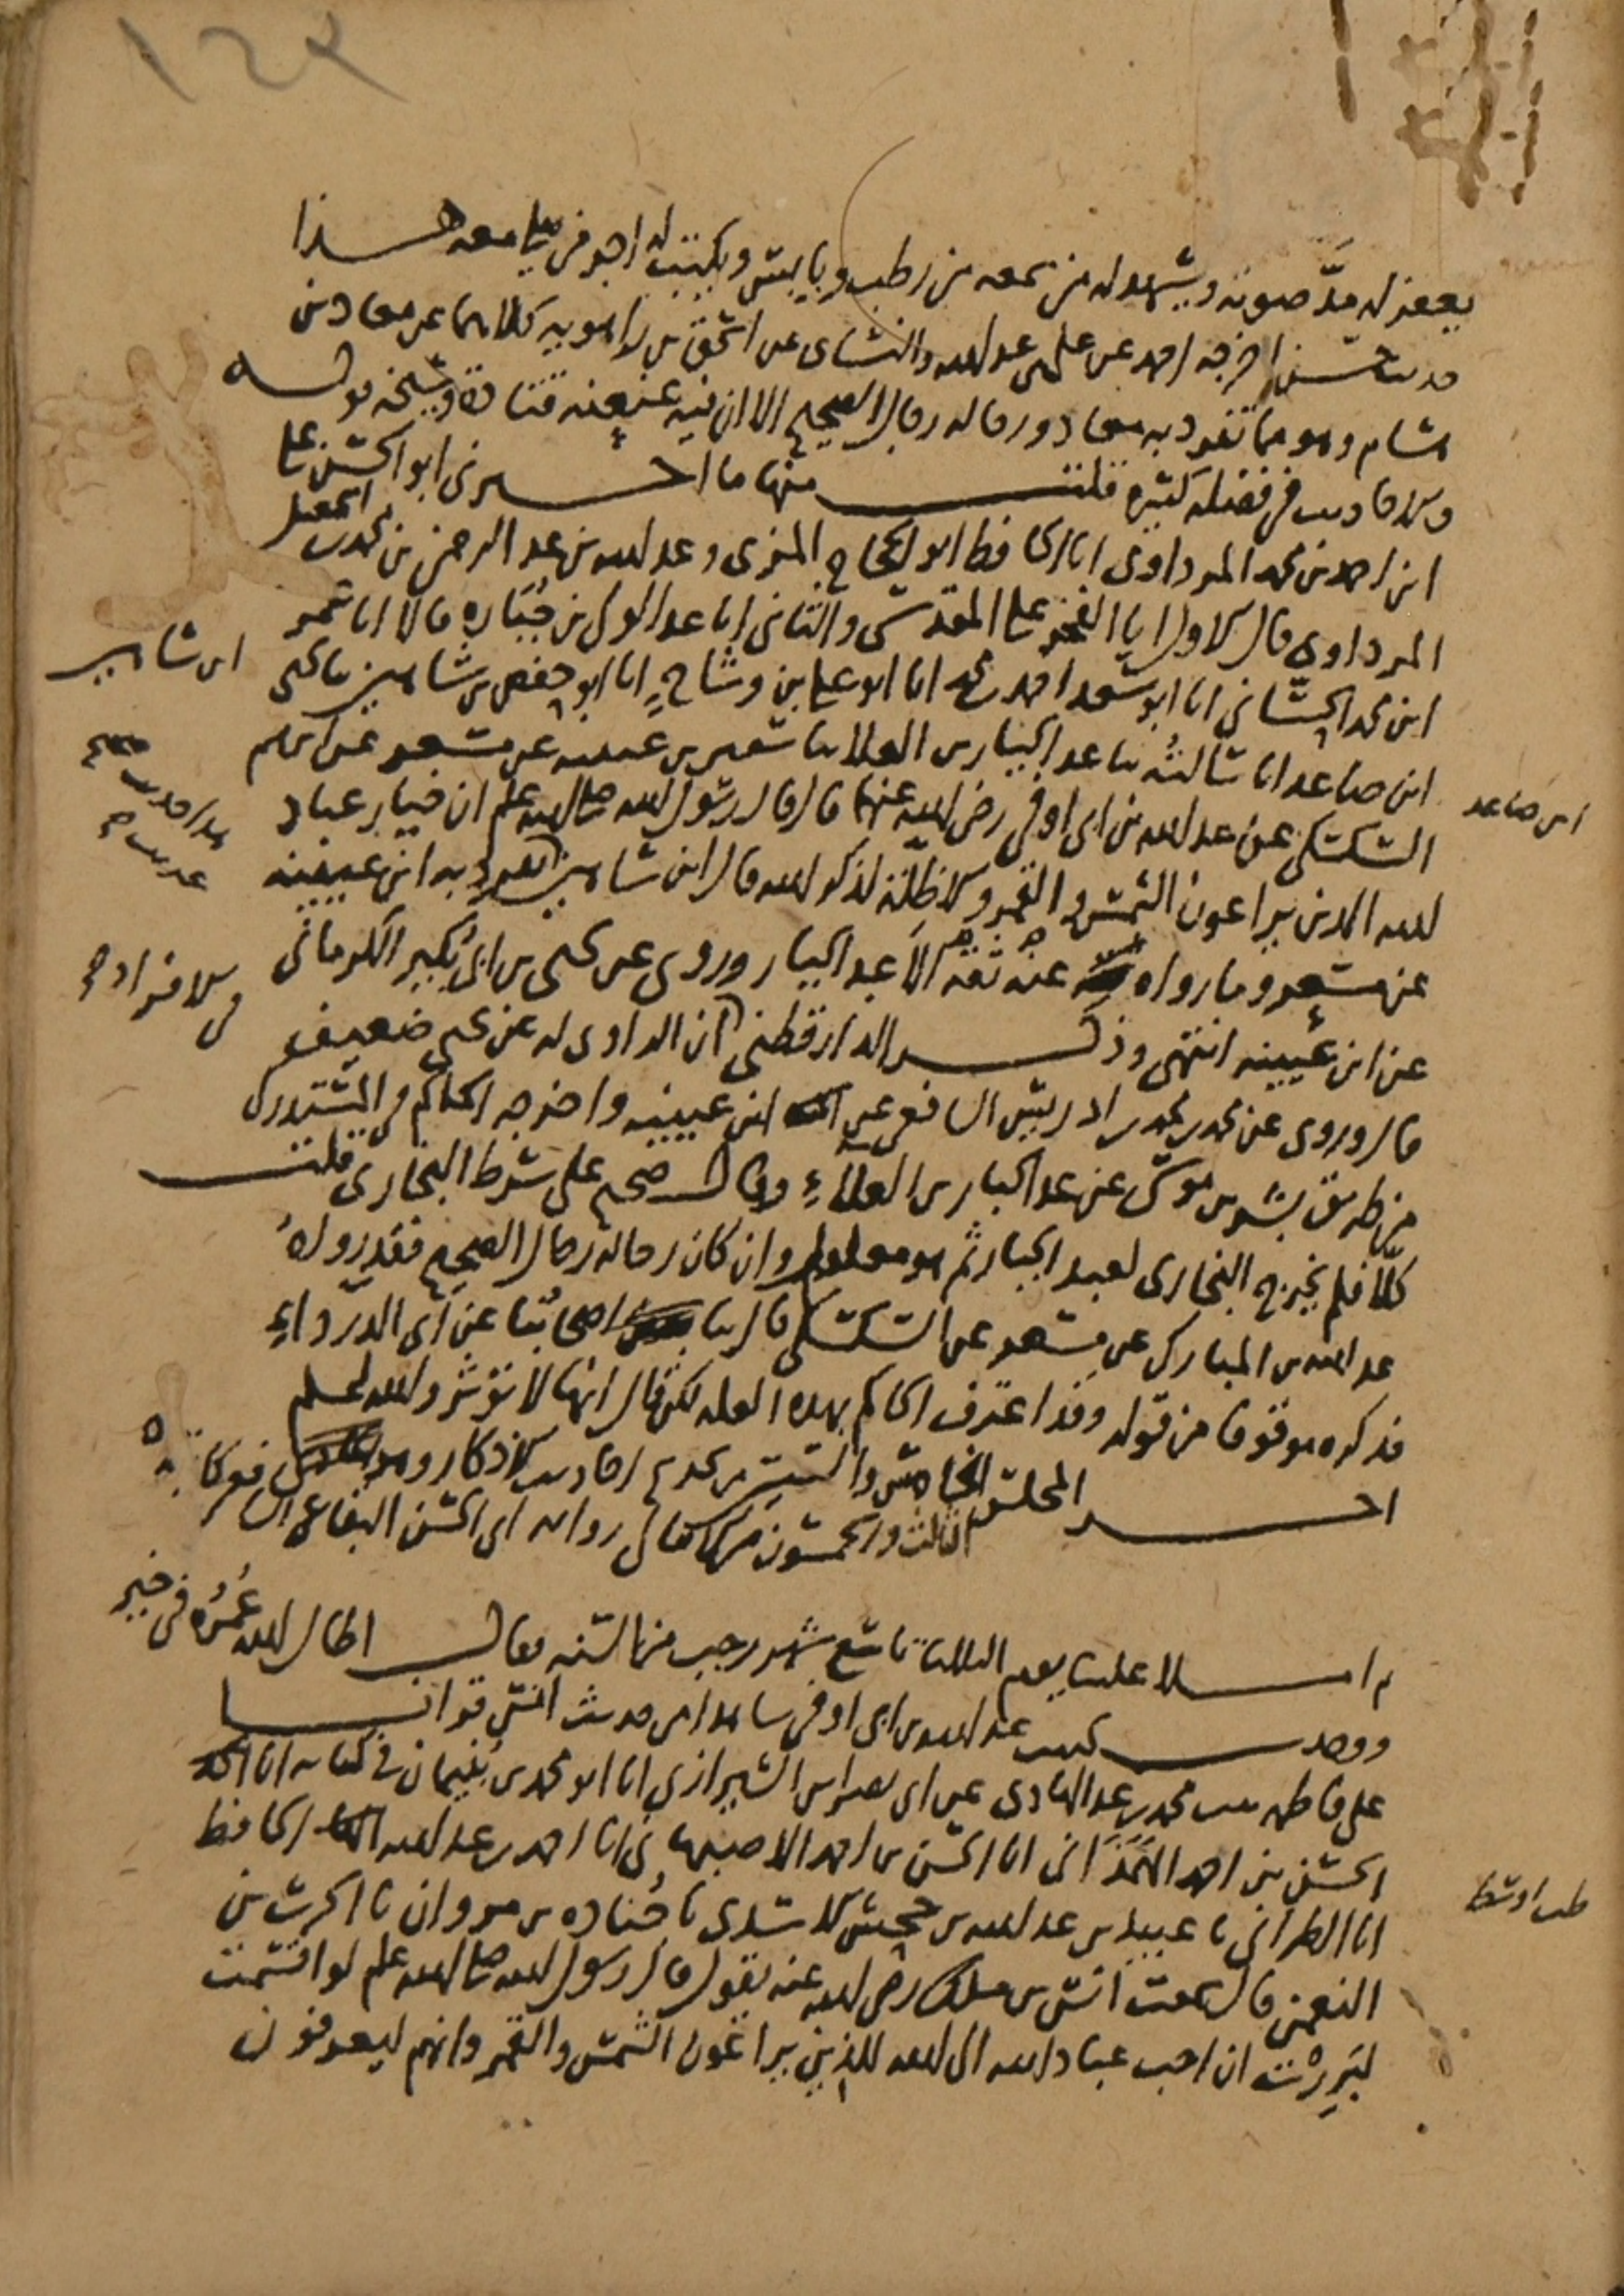 ١٤٣
يغفر له مدّ صوته ويشهد له من سمعه من رطب ويابس ويكتب له اجر من صلى معه هذا
حديث حسن اخرجه احمد عن علي بن عبد الله والنسائي عن اسحق بن راهويه كلاهما عن معاذ بن
هشام وهو مما تفرد به معاذ ورجاله رجال الصحيح الا ان فيه عنعنة قتادة وشيخه قوله
والاحاديث في فضله كثيرة قلت منها ما اخبرني ابو الحسن علي
ابن احمد بن محمد المرداوي انا الحافظ ابو الحجاج المزي وعبد الله بن عبد الرحمن بن محمد بن اسمعيل
المرداوي قال الاول انا الفخر علي المقدسي والثاني انا عبد الولي بن جبارة قالا انا عمر
ابن محمد الحساني انا ابو سعد احمد بن محمد انا ابو علي بن وشاح انا ابو حفص بن شاهين نا يحيى
ابن صاعد انا سالته نا عبد الجبار بن العلاء نا سفين بن عيينه عن مسعر عن ابرهيم
السكسكي عن عبد الله بن ابي اوفى رضي الله عنهما قال قال رسول الله صلى الله عليه وسلم ان خيار عباد
الله الذين يراعون الشمس والقمر والاظلة لذكر الله قال ابن شاهين تفرد به ابن عيينه
عن مسعر وما رواه عنه ثقة الا عبد الجبار وروي عن يحيى بن ابي بكير الكرماني
عن ابن عيينه انتهى وذكر الدارقطني ان الراوي له عن يحيى ضعيف
قال وروي عن محمد بن محمد بن ادريس الشافعي عن ابن عيينه واخرجه الحاكم في المستدرك
من طريق بشر بن موسى عن عبد الجبار بن العلاء وقال صحيح على شرط البخاري قلت
كلا فلم يخرج البخاري لعبد الجبار ثم هو معلول وان كان رجاله رجال الصحيح فقد رواه
عبد الله بن المبارك عن مسعر عن السكسكي قال نا اصحابنا عن ابي الدرداء
فذكره موقوفا من قوله وقد اعترف الحاكم بهذه العلة لكن قال انها لا تؤثر والله اعلم
اخر المجلس الخامس والستين من تخريج احاديث الاذكار وهو
الثالث والخمسون من رواية ابي الحسن البقاعي الشافعي
ثم املا علينا يوم الثلاثاء تاسع شهر رجب من السنة فقال اطال الله عمره في خير
ووجدت لحديث عبد الله بن ابي اوفى شاهدا من حديث انس قرانا
على فاطمة بنت محمد بن عبد الهادي عن ابي نصر بن الشيرازي انا ابو محمد بن بنيمان في كتابه انا
الحسن بن احمد الهمذاني انا الحسن بن احمد الاصبهاني انا احمد بن عبد الله الحافظ
انا الطبراني نا عبيد بن عبد الله بن جحش الاسدي نا جنادة بن مروان نا الحرث بن
النعمن قال سمعت انس بن ملك رضي الله عنه يقول قال رسول الله صلى الله عليه وسلم لو اقسمت
لبررت ان احب عباد الله الى الله للذين يراعون الشمس والقمر وانهم ليعرفون
ابن شاهين
ابن صاعد
في الافراد
طب اوسط